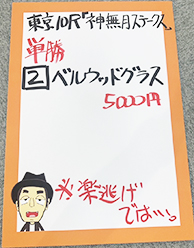 東京10R「神無月ステークス」
単勝
2 ベルウッドグラス
5000円
楽逃げ
では…。